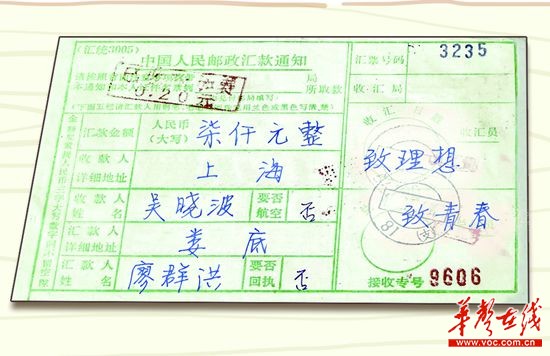 (汇统3005)
中国人民邮政汇款通知
汇票号码 3235
局
所取款 收汇局
收汇员
汇款金额 人民币(大写) 柒仟元整
收款人详细地址 上海
致理想
收款人姓名 吴晓波 要否航空 否
致青春
汇款人详细地址 娄底
汇款人姓名 廖群洪 要否回执 否
接收专号 9606
华声在线
www.voc.com.cn